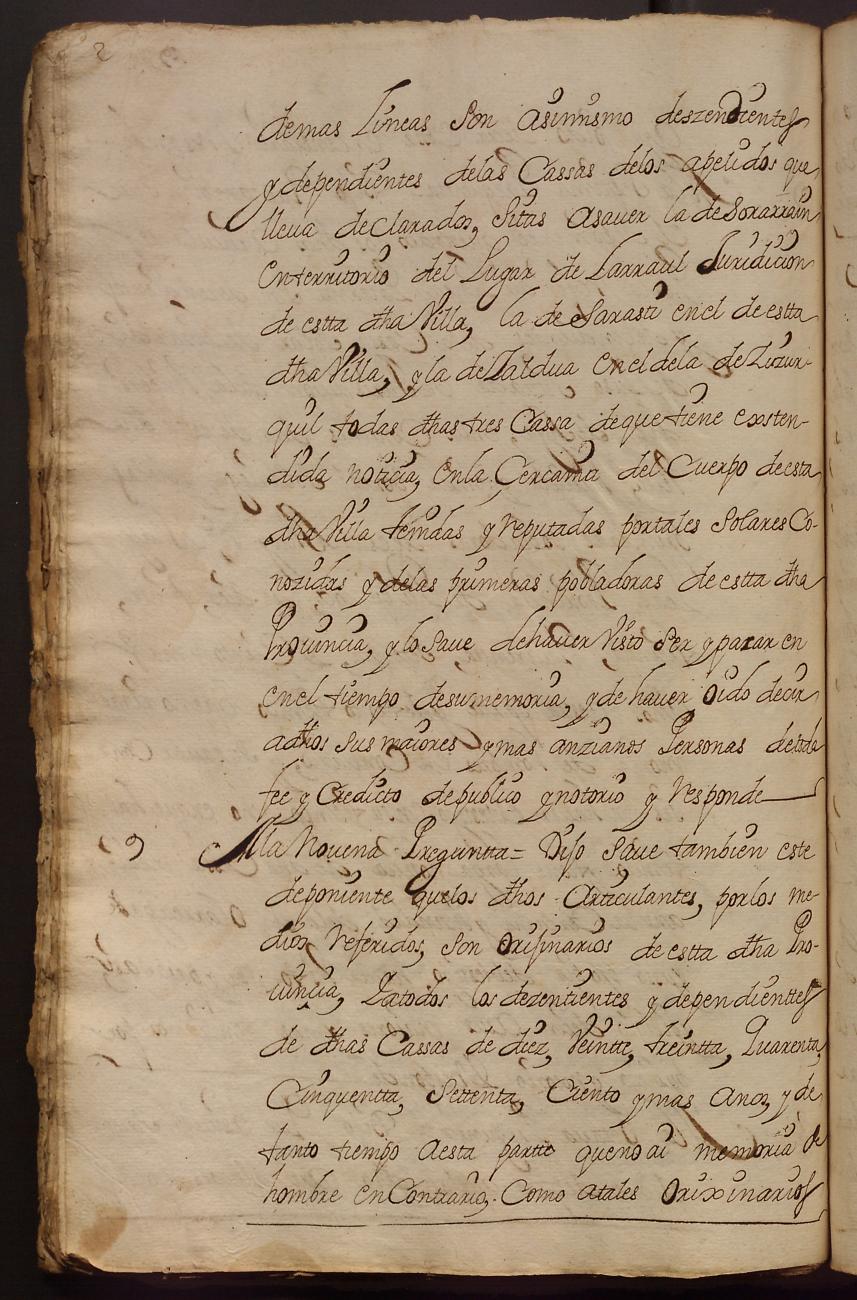 2
demas Lineas son asimismo deszendientes
y dependientes delas Cassas delos apelidos que
lleua declarados, Sitas asauer la de Sorarrain
en territorio del Lugar de Larraul Juridicion
de estta dha Villa, la de Sarasti en el de estta
dha Villa, y la de Zaldua en el dela de Zizur-
quil todas dhas tres Cassa de que tiene exsten-
dida noticia, en la Cercania del Cuerpo de esta
dha Villa tenidas y reputadas por tales Solares Co-
nozidas y delas primeras pobladoras de estta dha
Prouincia, y lo saue de hauer Visto ser y pasar en
en el tiempo de su memoria, y de hauer oido decir
adhos sus maiores y mas anzianos Personas de toda
fee y Credicto de publico y notorio y responde
9 A la Nouena Preguntta = Dijo saue tambien este
deponiente que los dhos Articulantes, por los me-
dios referidos, son orijinarios de estta dha Pro-
uincia, Y a todos los dezentientes y dependienttes
de dhas Cassas de diez, Veintte, treintta, Quarenta,
Cinquentta, Settenta, Ciento y mas anos, y de
tanto tiempo a esta partte que no ai memoria de
hombre en Contrario, Como a tales Orixinarios